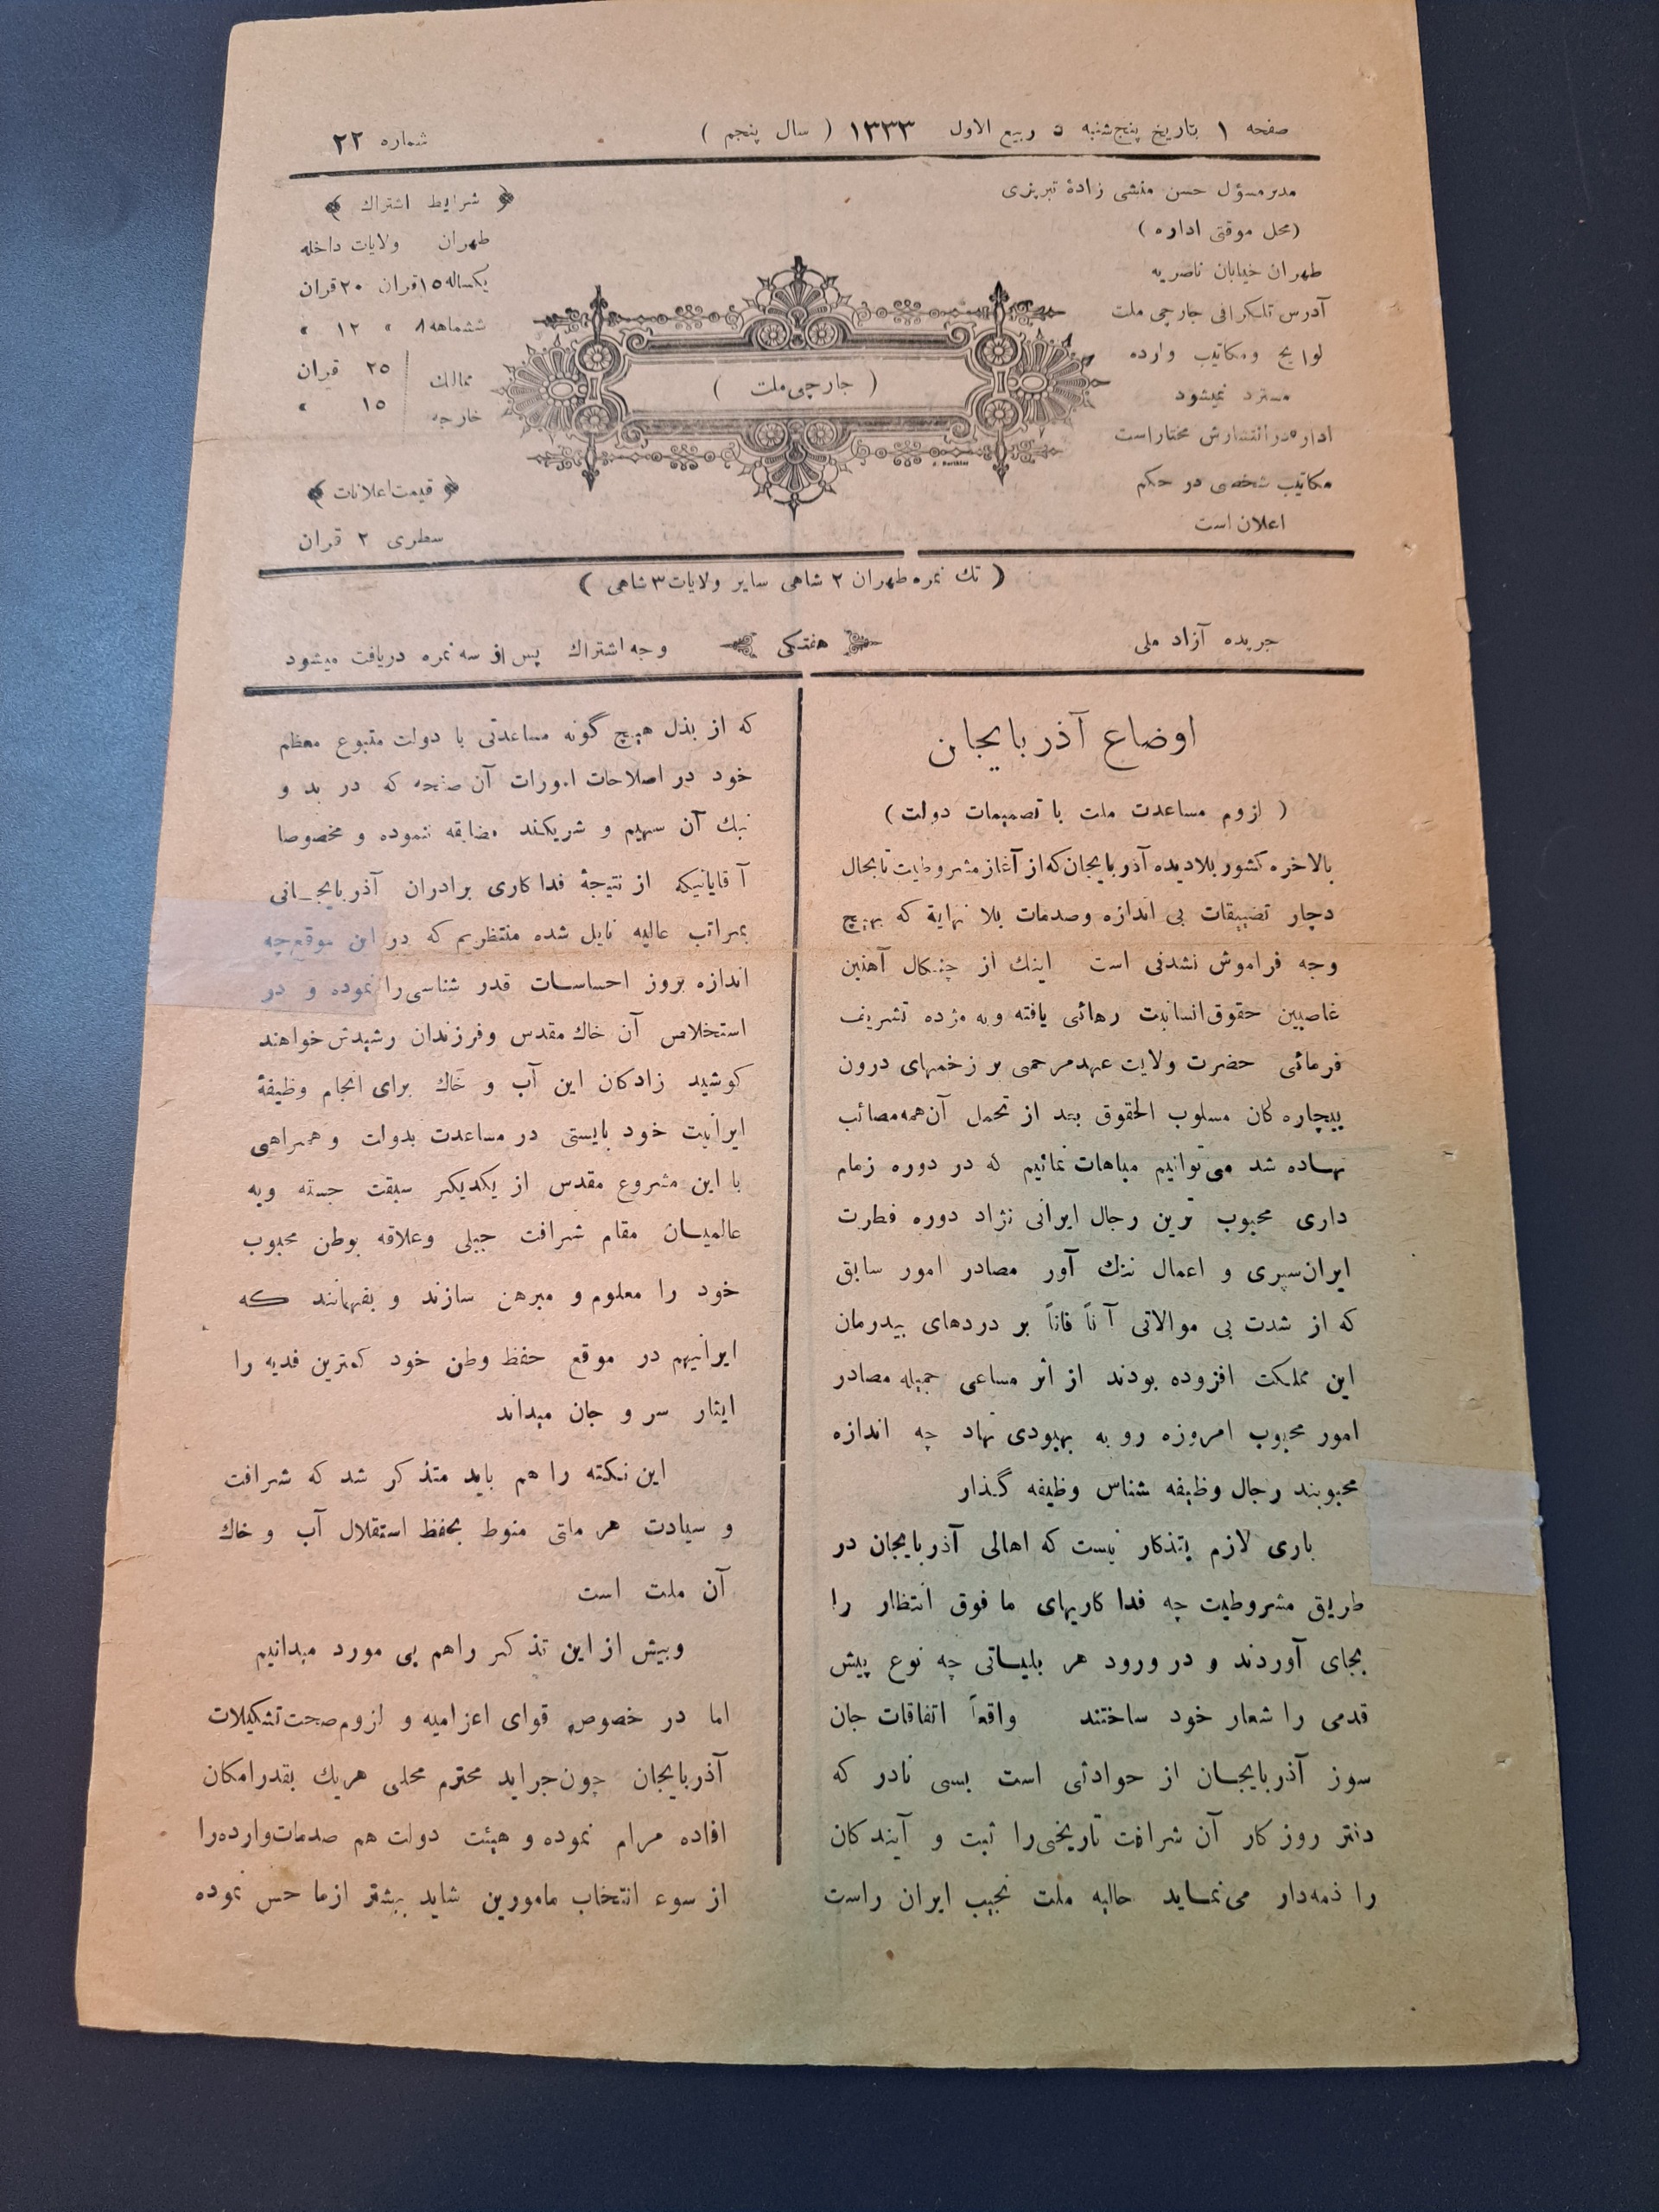 صفحه ۱ بتاریخ پنجشنبه ۵ ربیع الاول ۱۳۳۳ ( سال پنجم ) شماره ۲۲
مدیر مسؤل حسن منشی زادهٔ تبریزی
(محل موقتی اداره )
طهران خیابان ناصریه
آدرس تلگرافی جارچی ملت
لوایح ومکاتیب وارده
مسترد نمیشود
اداره در انتشارش مختار است
مکاتیب شخصی در حکم
اعلان است
( جارچی ملت )
﴿ شرایط اشتراك ﴾
طهران ولایات داخله
یکساله ۱۵ قران ۲۰ قران
ششماهه ۸ » ۱۲ »
ممالك خارجه ۲۵ قران
۱۵ »
﴿ قیمت اعلانات ﴾
سطری ۲ قران
( تك نمره طهران ۲ شاهی سایر ولایات ۳ شاهی )
جریده آزاد ملی
هفتگی
وجه اشتراك پس از سه نمره دریافت میشود
اوضاع آذربایجان
( لزوم مساعدت ملت با تصمیمات دولت )
بالاخره کشور بلادیده آذربایجان که از آغاز مشروطیت تابحال
دچار تضییقات بی اندازه وصدمات بلا نهایة که بهیچ
وجه فراموش نشدنی است اینك از چنگال آهنین
غاصبین حقوق انسانیت رهائی یافته وبه مژده تشریف
فرمائی حضرت ولایت عهد مرحمی بر زخمهای درون
بیچاره کان مسلوب الحقوق بعد از تحمل آن همه مصائب
نهاده شد می توانیم مباهات نمائیم که در دوره زمام
داری محبوب ترین رجال ایرانی نژاد دوره فطرت
ایران سپری و اعمال ننك آور مصادر امور سابق
که از شدت بی موالاتی آناً فاناً بر دردهای بیدرمان
این مملکت افزوده بودند از اثر مساعی جمیله مصادر
امور محبوب امروزه رو به بهبودی نهاد چه اندازه
محبوبند رجال وظیفه شناس وظیفه گذار
باری لازم بتذکار نیست که اهالی آذربایجان در
طریق مشروطیت چه فداکاریهای ما فوق انتظار را
بجای آوردند و در ورود هر بلیاتی چه نوع پیش
قدمی را شعار خود ساختند واقعاً اتفاقات جان
سوز آذربایجان از حوادثی است بسی نادر که
دفتر روز کار آن شرافت تاریخی را ثبت و آیندکان
را ذمه‌دار می نماید حالیه ملت نجیب ایران راست
که از بذل هیچ گونه مساعدتی با دولت متبوع معظم
خود در اصلاحات امورات آن صفحه که در بد و
نیك آن سهیم و شریکند مضایقه ننموده و مخصوصا
آقایانیکه از نتیجهٔ فداکاری برادران آذربایجانی
بمراتب عالیه نایل شده منتظریم که در این موقع چه
اندازه بروز احساسات قدر شناسی را نموده و در
استخلاص آن خاك مقدس وفرزندان رشیدش خواهند
کوشید زادکان این آب و خاك برای انجام وظیفهٔ
ایرانیت خود بایستی در مساعدت بدولت و همراهی
با این مشروع مقدس از یکدیکر سبقت جسته وبه
عالمیان مقام شرافت جبلی وعلاقه بوطن محبوب
خود را معلوم و مبرهن سازند و بفهمانند که
ایرانیهم در موقع حفظ وطن خود کمترین فدیه را
ایثار سر و جان میداند
این نکته را هم باید متذکر شد که شرافت
و سیادت هر ملتی منوط بحفظ استقلال آب و خاك
آن ملت است
وبیش از این تذکر راهم بی مورد میدانیم
اما در خصوص قوای اعزامیه و لزوم صحت تشکیلات
آذربایجان چون جراید محترم محلی هریك بقدر امکان
افاده مرام نموده و هیئت دولت هم صدمات وارده را
از سوء انتخاب مامورین شاید بیشتر از ما حس نموده